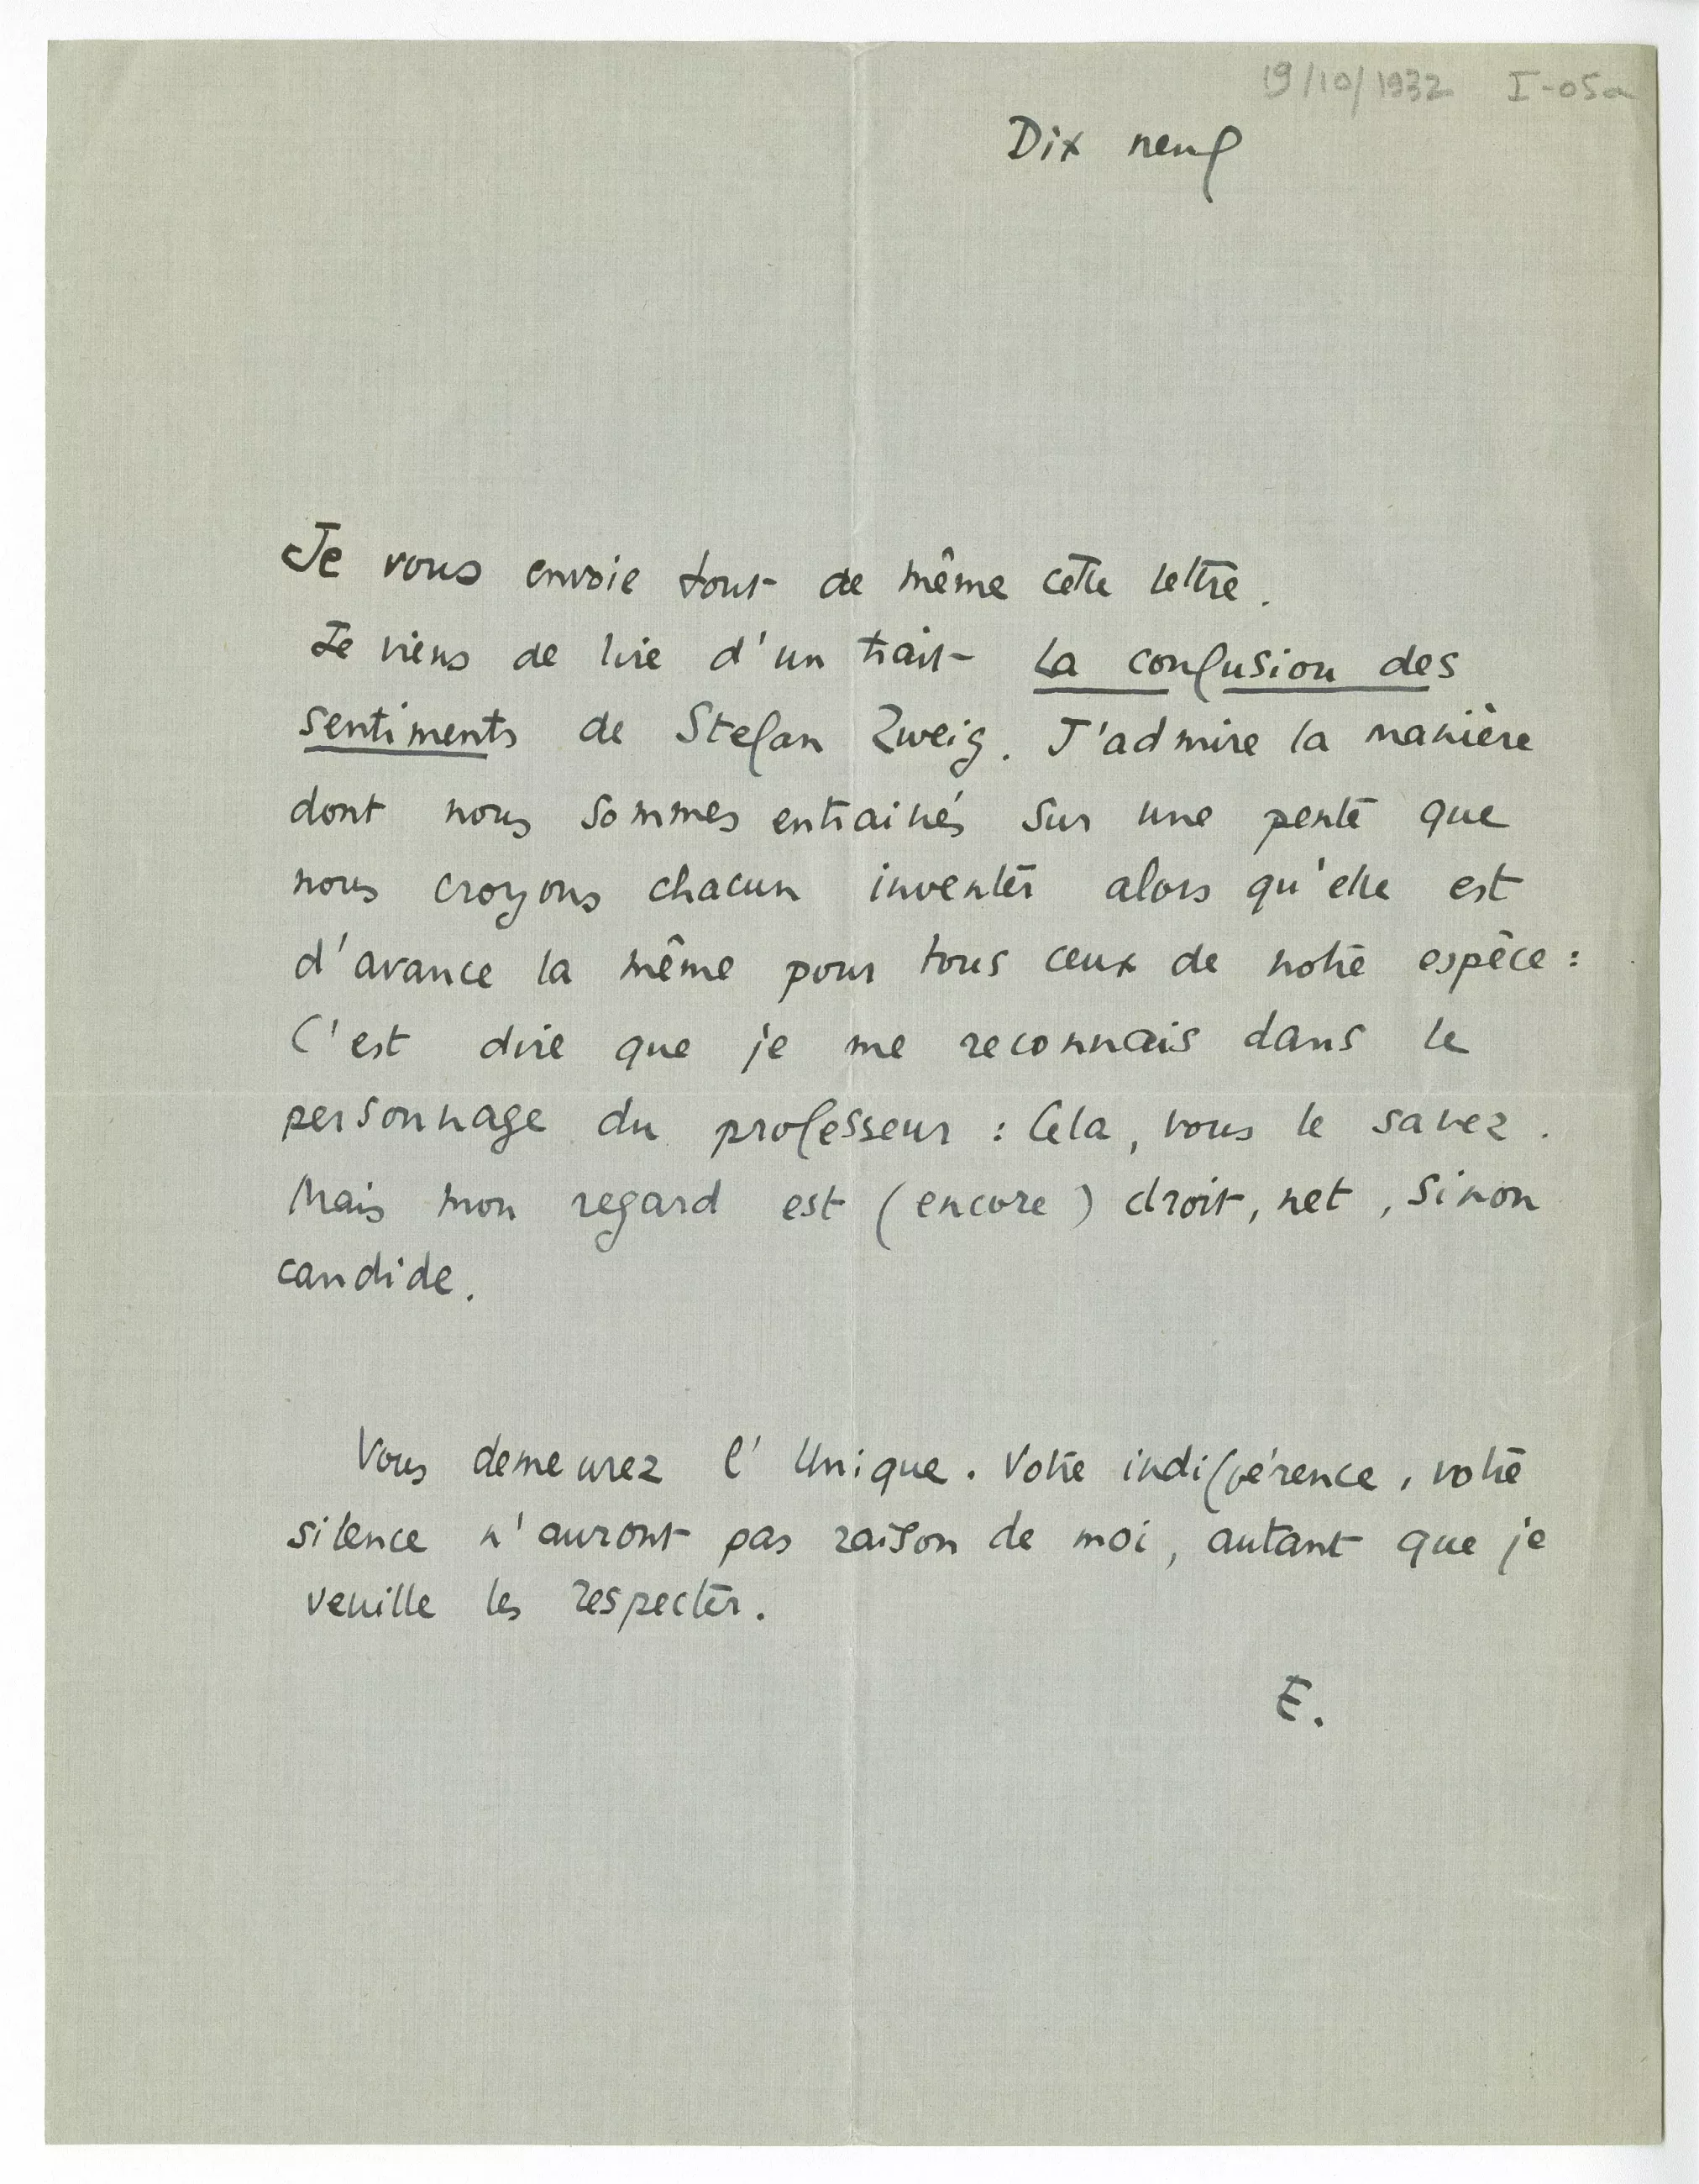 19/10/1932 I-05a
Dix neuf
Je vous envoie tout de même cette lettre.
Je viens de lire d'un trait La confusion des
sentiments de Stefan Zweig. J'admire la manière
dont nous sommes entrainés sur une pente que
nous croyons chacun inventer alors qu'elle est
d'avance la même pour tous ceux de notre espèce :
C'est dire que je me reconnais dans le
personnage du professeur : Cela, vous le savez.
Mais mon regard est (encore) droit, net, sinon
candide.
Vous demeurez l'Unique. Votre indifférence, votre
silence n'auront pas raison de moi, autant que je
veuille les respecter.
E.